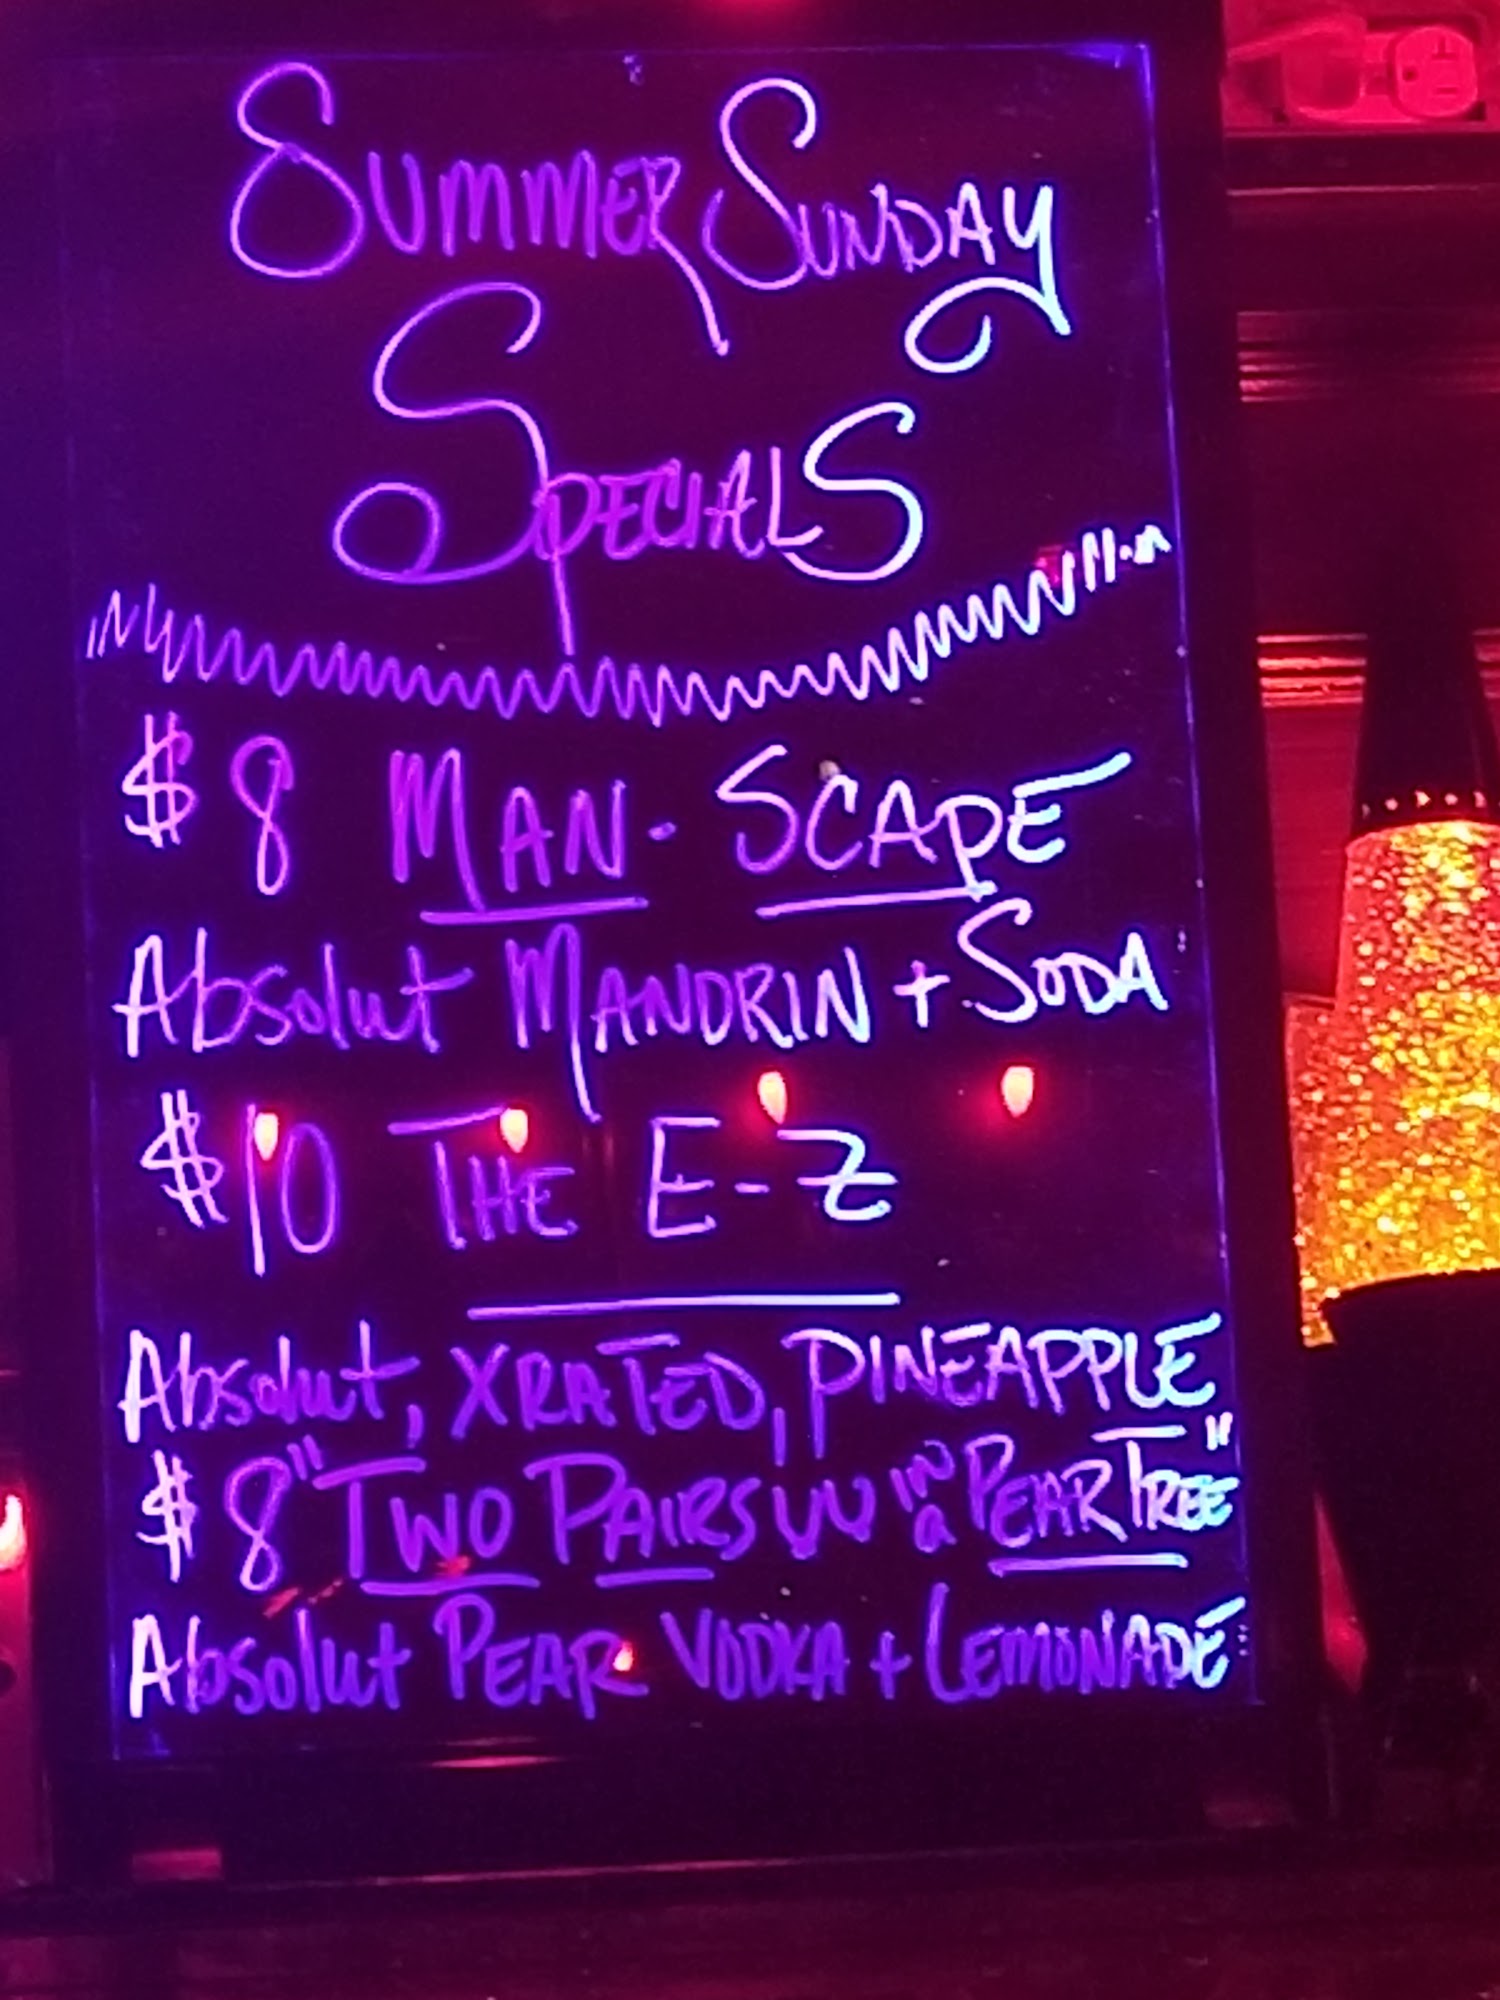 Summer Sunday
Specials
$8 Man-Scape
Absolut Mandrin + Soda
$10 The E-Z
Absolut, XRated, Pineapple
$8 "Two Pairs in a Pear Tree"
Absolut Pear Vodka + Lemonade